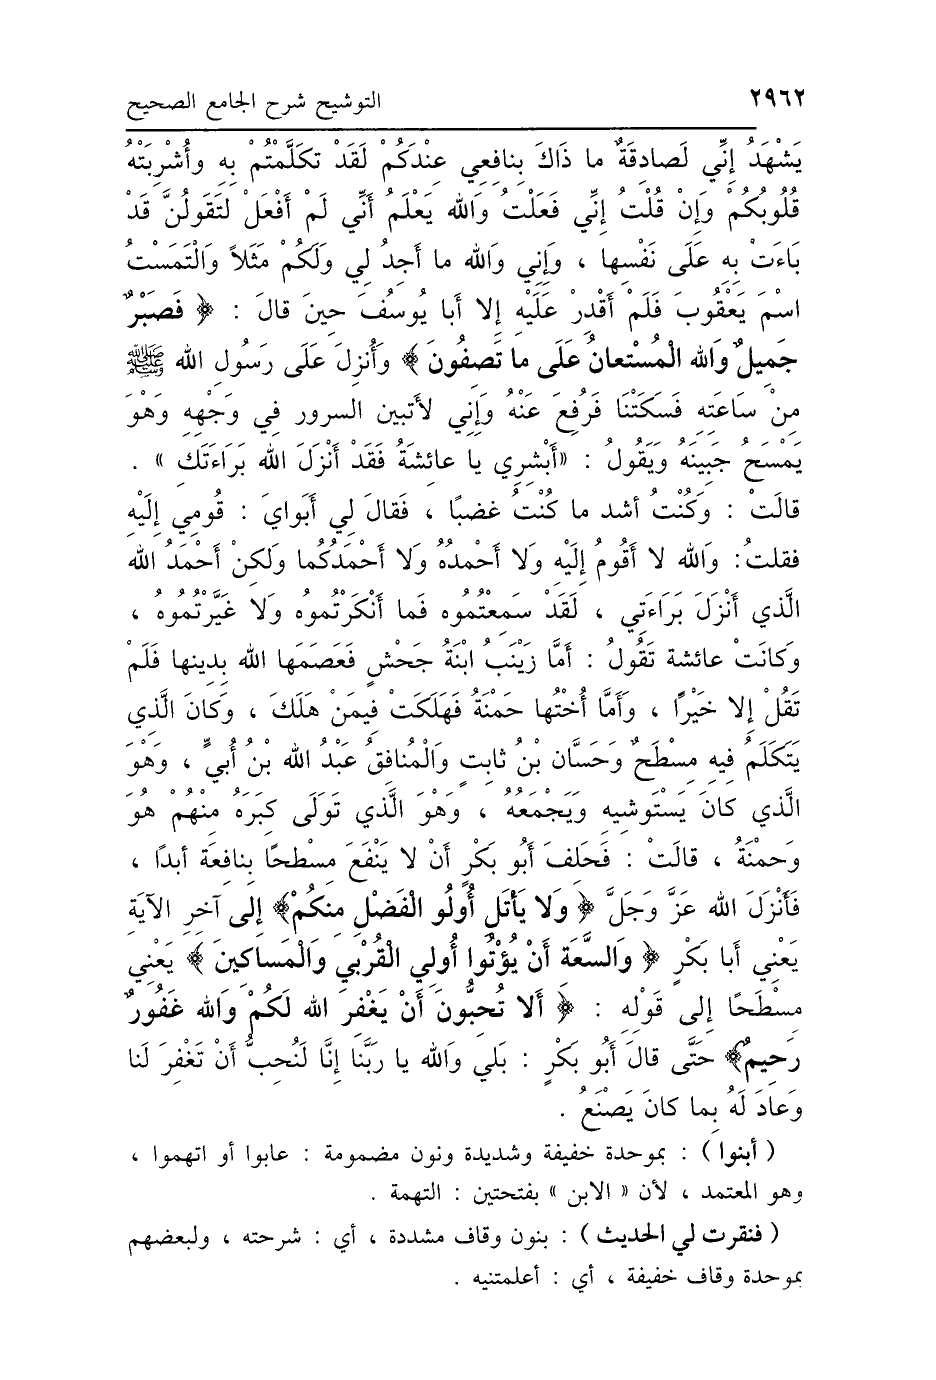 ٢٩٦٢ التوشيح شرح الجامع الصحيح
يَشْهَدُ إِنِّي لَصادِقَةٌ ما ذَاكَ بِنافِعِي عِنْدَكُمْ لَقَدْ تكَلَّمْتُمْ بِهِ وأُشْرِبَتْهُ
قُلُوبُكُمْ وَإِنْ قُلْتُ إِنِّي فَعَلْتُ وَالله يَعْلَمُ أَنِّي لَمْ أَفْعَلْ لتَقولُنَّ قَدْ
بَاءَتْ بِهِ عَلَى نَفْسِها ، وَإِني وَالله ما أَجِدُ لِي وَلَكُمْ مَثَلاً وَالْتَمَسْتُ
اسْمَ يَعْقُوبَ فَلَمْ أَقْدِرْ عَلَيْهِ إِلا أَبا يُوسُفَ حِينَ قالَ : ﴿ فَصَبْرٌ
جَمِيلٌ وَالله الْمُسْتعانُ عَلَى ما تَصِفُونَ ﴾ وَأُنزِلَ عَلَى رَسُولِ الله ﷺ
مِنْ سَاعَتِهِ فَسَكَتْنَا فَرُفِعَ عَنْهُ وَإِني لأتبين السرور فِي وَجْهِهِ وَهُوَ
يَمْسَحُ جَبِينَهُ وَيَقُولُ : «أَبْشِرِي يا عائشَةُ فَقَدْ أَنْزَلَ الله بَرَاءَتَك » .
قالَتْ : وَكُنْتُ أشد ما كُنْتُ غضبًا ، فَقالَ لِي أَبَوايَ : قُومِي إِلَيْهِ
فقلتُ: وَالله لا أَقُومُ إِلَيْهِ وَلا أَحْمدُهُ وَلا أَحْمَدُكُما وَلكِنْ أَحْمَدُ الله
الَّذي أَنْزَلَ بَرَاءَتِي ، لَقَدْ سَمِعْتُموه فَما أَنْكَرْتُموُه وَلا غَيَّرْتُموُه ،
وَكانَتْ عائشة تَقُولُ : أَمَّا زَيْنَبُ ابْنَةُ جَحْشٍ فَعَصَمَها الله بِدِينِها فَلَمْ
تَقُلْ إِلا خَيْرًا ، وَأَمَّا أُخْتُها حَمْنَةُ فَهَلَكَتْ فِيمَنْ هَلَكَ ، وَكانَ الَّذي
يَتَكَلَمُ فِيهِ مِسْطَحٌ وَحَسَّان بْنُ ثابِتٍ وَالْمُنافِقُ عَبْدُ الله بْنُ أُبيٍّ ، وَهْوَ
الَّذي كانَ يَسْتَوشيه وَيَجْمَعُهُ ، وَهْوَ الَّذي تَوَلَى كِبَرَهُ مِنْهُمْ هُوَ
وَحمْنَةُ ، قالَتْ : فَحَلَفَ أَبُو بَكْرٍ أَنْ لا يَنْفَعَ مِسْطحًا بنافعَة أبدًا ،
فَأَنْزَلَ الله عَزَّ وَجَلَّ ﴿ وَلا يَأْتَلِ أُولُو الْفَضْلِ مِنكُمْ﴾ إِلى آخِرِ الآيَة
يَعْنِي أَبا بَكْرٍ ﴿ وَالسَّعَة أَنْ يُؤْتُوا أُولِي الْقُرْبي وَالْمَساكِينَ ﴾ يَعْنِي
مِسْطَحًا إِلى قَوْلِهِ : ﴿ أَلا تُحِبُّونَ أَنْ يَغْفِرَ الله لَكُمْ وَالله غَفُورٌ
رَحِيمٌ﴾ حَتَّى قالَ أَبُو بَكْرٍ : بَلي وَالله يا رَبَّنَا إِنَّا لَنُحِبُّ أَنْ تَغْفِرَ لَنا
وَعادَ لَهُ بِما كانَ يَصْنَعُ .
( أبنوا ) : بموحدة خفيفة وشديدة ونون مضمومة : عابوا أو اتهموا ،
وهو المعتمد ، لأن « الابن » بفتحتين : التهمة .
( فنقرت لي الحديث ) : بنون وقاف مشددة ، أي : شرحته ، ولبعضهم
بموحدة وقاف خفيفة ، أي : أعلمتنيه .